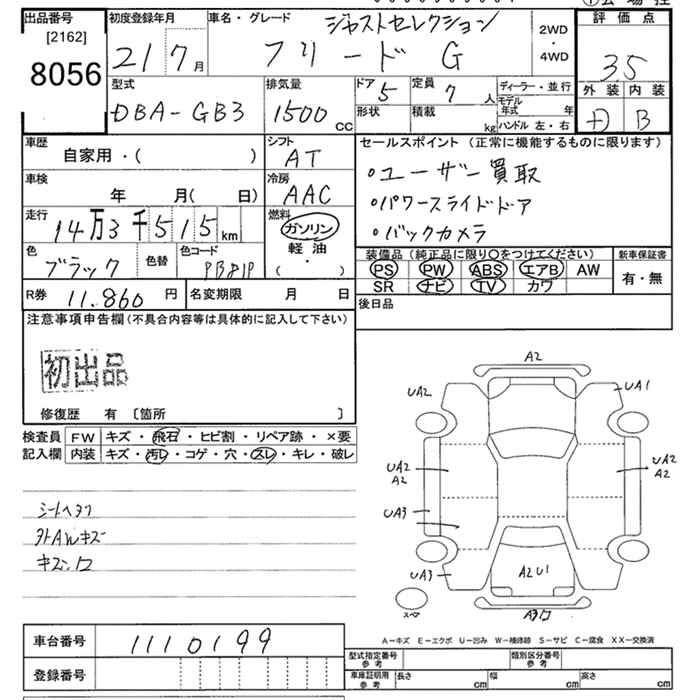 出品番号
[2162]
8056
初度登録年月
21 7月
車名・グレード
ジャストセレクション
フリード G
2WD
・
4WD
評価点
3.5
外装 内装
B
型式
DBA-GB3
排気量
1500 CC
ドア 5
形状
定員 7 人
積載 kg
ディーラー・並行
モデル年式 年
ハンドル 左・右
車歴
自家用・( )
シフト
AT
セールスポイント (正常に機能するものに限ります)
・ユーザー買取
・パワースライドドア
・バックカメラ
車検
年 月( 日)
冷房
AAC
走行
14万3千515km
燃料
ガソリン
軽油
( ・ )
色
ブラック
色替
色コード
装備品 (純正品に限り○をつけてください)
新車保証書
PS PW ABS エアB AW
SR ナビ TV カワ
有・無
R券 11.860 円
名変期限 月 日
後日品
注意事項申告欄(不具合内容等は具体的に記入して下さい)
初出品
修復歴 有 〔箇所 〕
検査員
記入欄
FW キズ・飛石・ヒビ割・リペア跡・×要
内装 キズ・汚レ・コゲ・穴・スレ・キレ・破レ
シートヘタリ
外AWキズ
A2
UA2
UA1
UA2
A2
UA2
A2
UA3
UA3
A2U1
スペア
A-キズ E-エクボ U-凹み W-補修跡 S-サビ C-腐食 XX-交換済
車台番号 1110199
登録番号
型式指定番号
参考
類別区分番号
参考
車庫証明用
参考
長さ cm 幅 cm 高さ cm